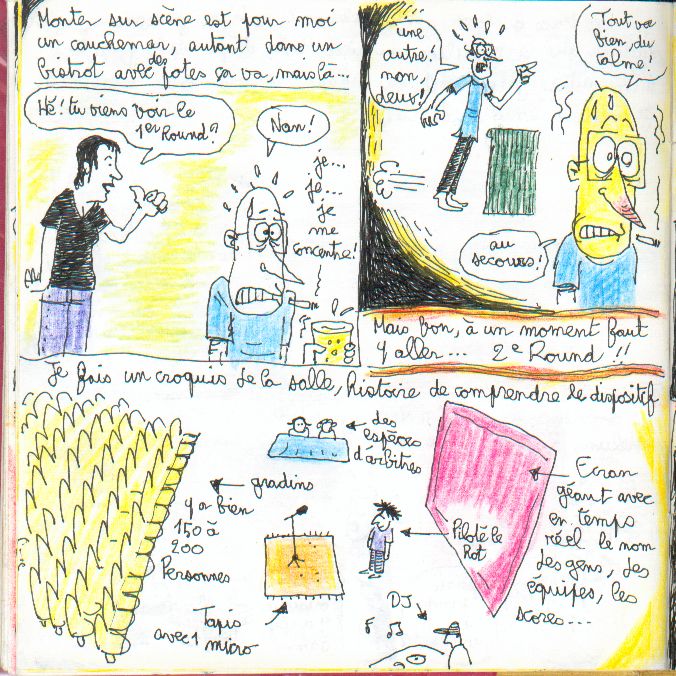 Monter sur scène est pour moi
un cauchemar, autant dans un
bistrot avec des potes ça va, mais là...
Hé! tu viens voir le
1er Round?
Nan!
je...
je...
je
me
concentre!
une
autre!
non
deux!
Tout va
bien, du
calme!
au
secours!
Mais bon, à un moment faut
y aller... 2e Round !!
Je fais un croquis de la salle, histoire de comprendre le dispositif
gradins
y a bien
150 à
200
Personnes
des
espèces
d'arbitres
Tapis
avec 1
micro
Pilote le
Rot
DJ
Ecran
géant avec
en temps
réel le nom
des gens, des
équipes, les
scores...